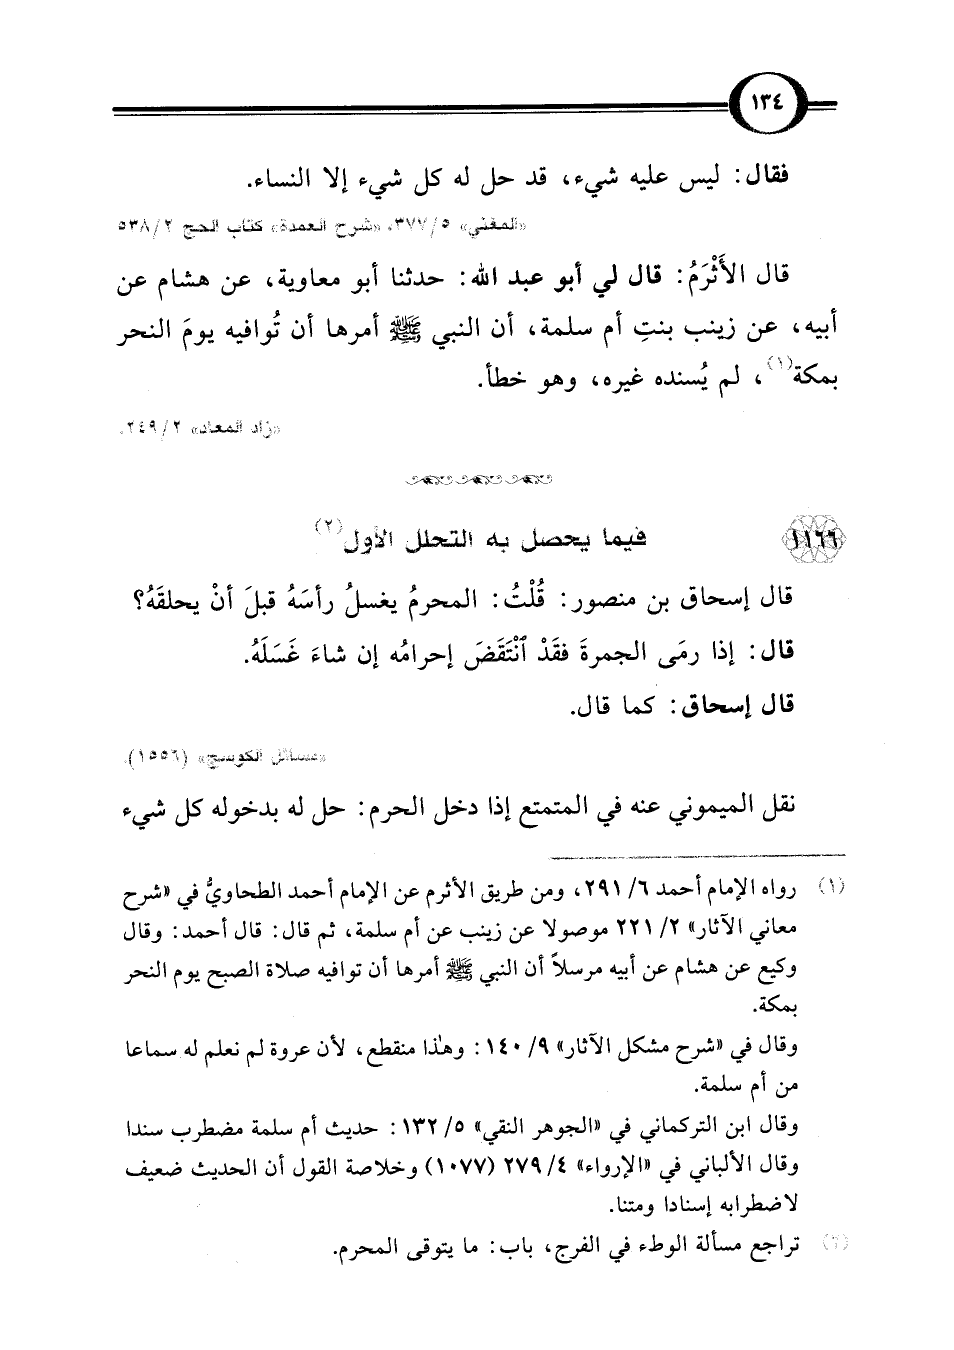 ١٣٤
فقال: ليس عليه شيء، قد حل له كل شيء إلا النساء.
«المغني» ٥/ ٣٧٧، «شرح العمدة» كتاب الحج ٢/ ٥٣٨
قال الأَثْرَمُ: قال لي أبو عبد الله: حدثنا أبو معاوية، عن هشام عن
أبيه، عن زينب بنتِ أم سلمة، أن النبي ﷺ أمرها أن تُوافيه يومَ النحر
بمكة(١)، لم يُسنده غيره، وهو خطأ.
«زاد المعاد» ٢/ ٢٤٩.
١١٦٦ فيما يحصل به التحلل الأول(٢)
قال إسحاق بن منصور: قُلْتُ: المحرمُ يغسلُ رأسَهُ قبلَ أنْ يحلقَهُ؟
قال: إذا رمَى الجمرةَ فقَدْ ٱنْتَقَضَ إحرامُه إن شاءَ غَسَلَهُ.
قال إسحاق: كما قال.
«مسائل الكوسج» (١٥٥٦).
نقل الميموني عنه في المتمتع إذا دخل الحرم: حل له بدخوله كل شيء
(١) رواه الإمام أحمد ٦/ ٢٩١، ومن طريق الأثرم عن الإمام أحمد الطحاويُّ في «شرح
معاني الآثار» ٢/ ٢٢١ موصولا عن زينب عن أم سلمة، ثم قال: قال أحمد: وقال
وكيع عن هشام عن أبيه مرسلاً أن النبي ﷺ أمرها أن توافيه صلاة الصبح يوم النحر
بمكة.
وقال في «شرح مشكل الآثار» ٩/ ١٤٠: وهٰذا منقطع، لأن عروة لم نعلم له سماعا
من أم سلمة.
وقال ابن التركماني في «الجوهر النقي» ٥/ ١٣٢: حديث أم سلمة مضطرب سندا
وقال الألباني في «الإرواء» ٤/ ٢٧٩ (١٠٧٧) وخلاصة القول أن الحديث ضعيف
لاضطرابه إسنادا ومتنا.
(٢) تراجع مسألة الوطء في الفرج، باب: ما يتوقى المحرم.